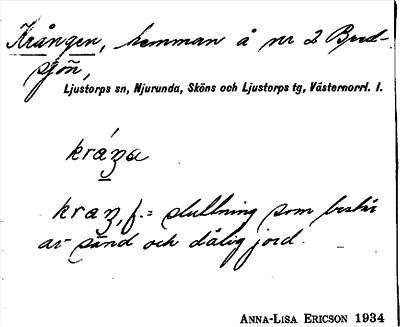 Krången, hemman å nr 2 Bred-
sjön,
Ljustorps sn, Njurunda, Sköns och Ljustorps tg, Västernorrl. l.
kráŋa
kraŋ, f. = sluttning som består
av sand och dålig jord.
ANNA-LISA ERICSON 1934